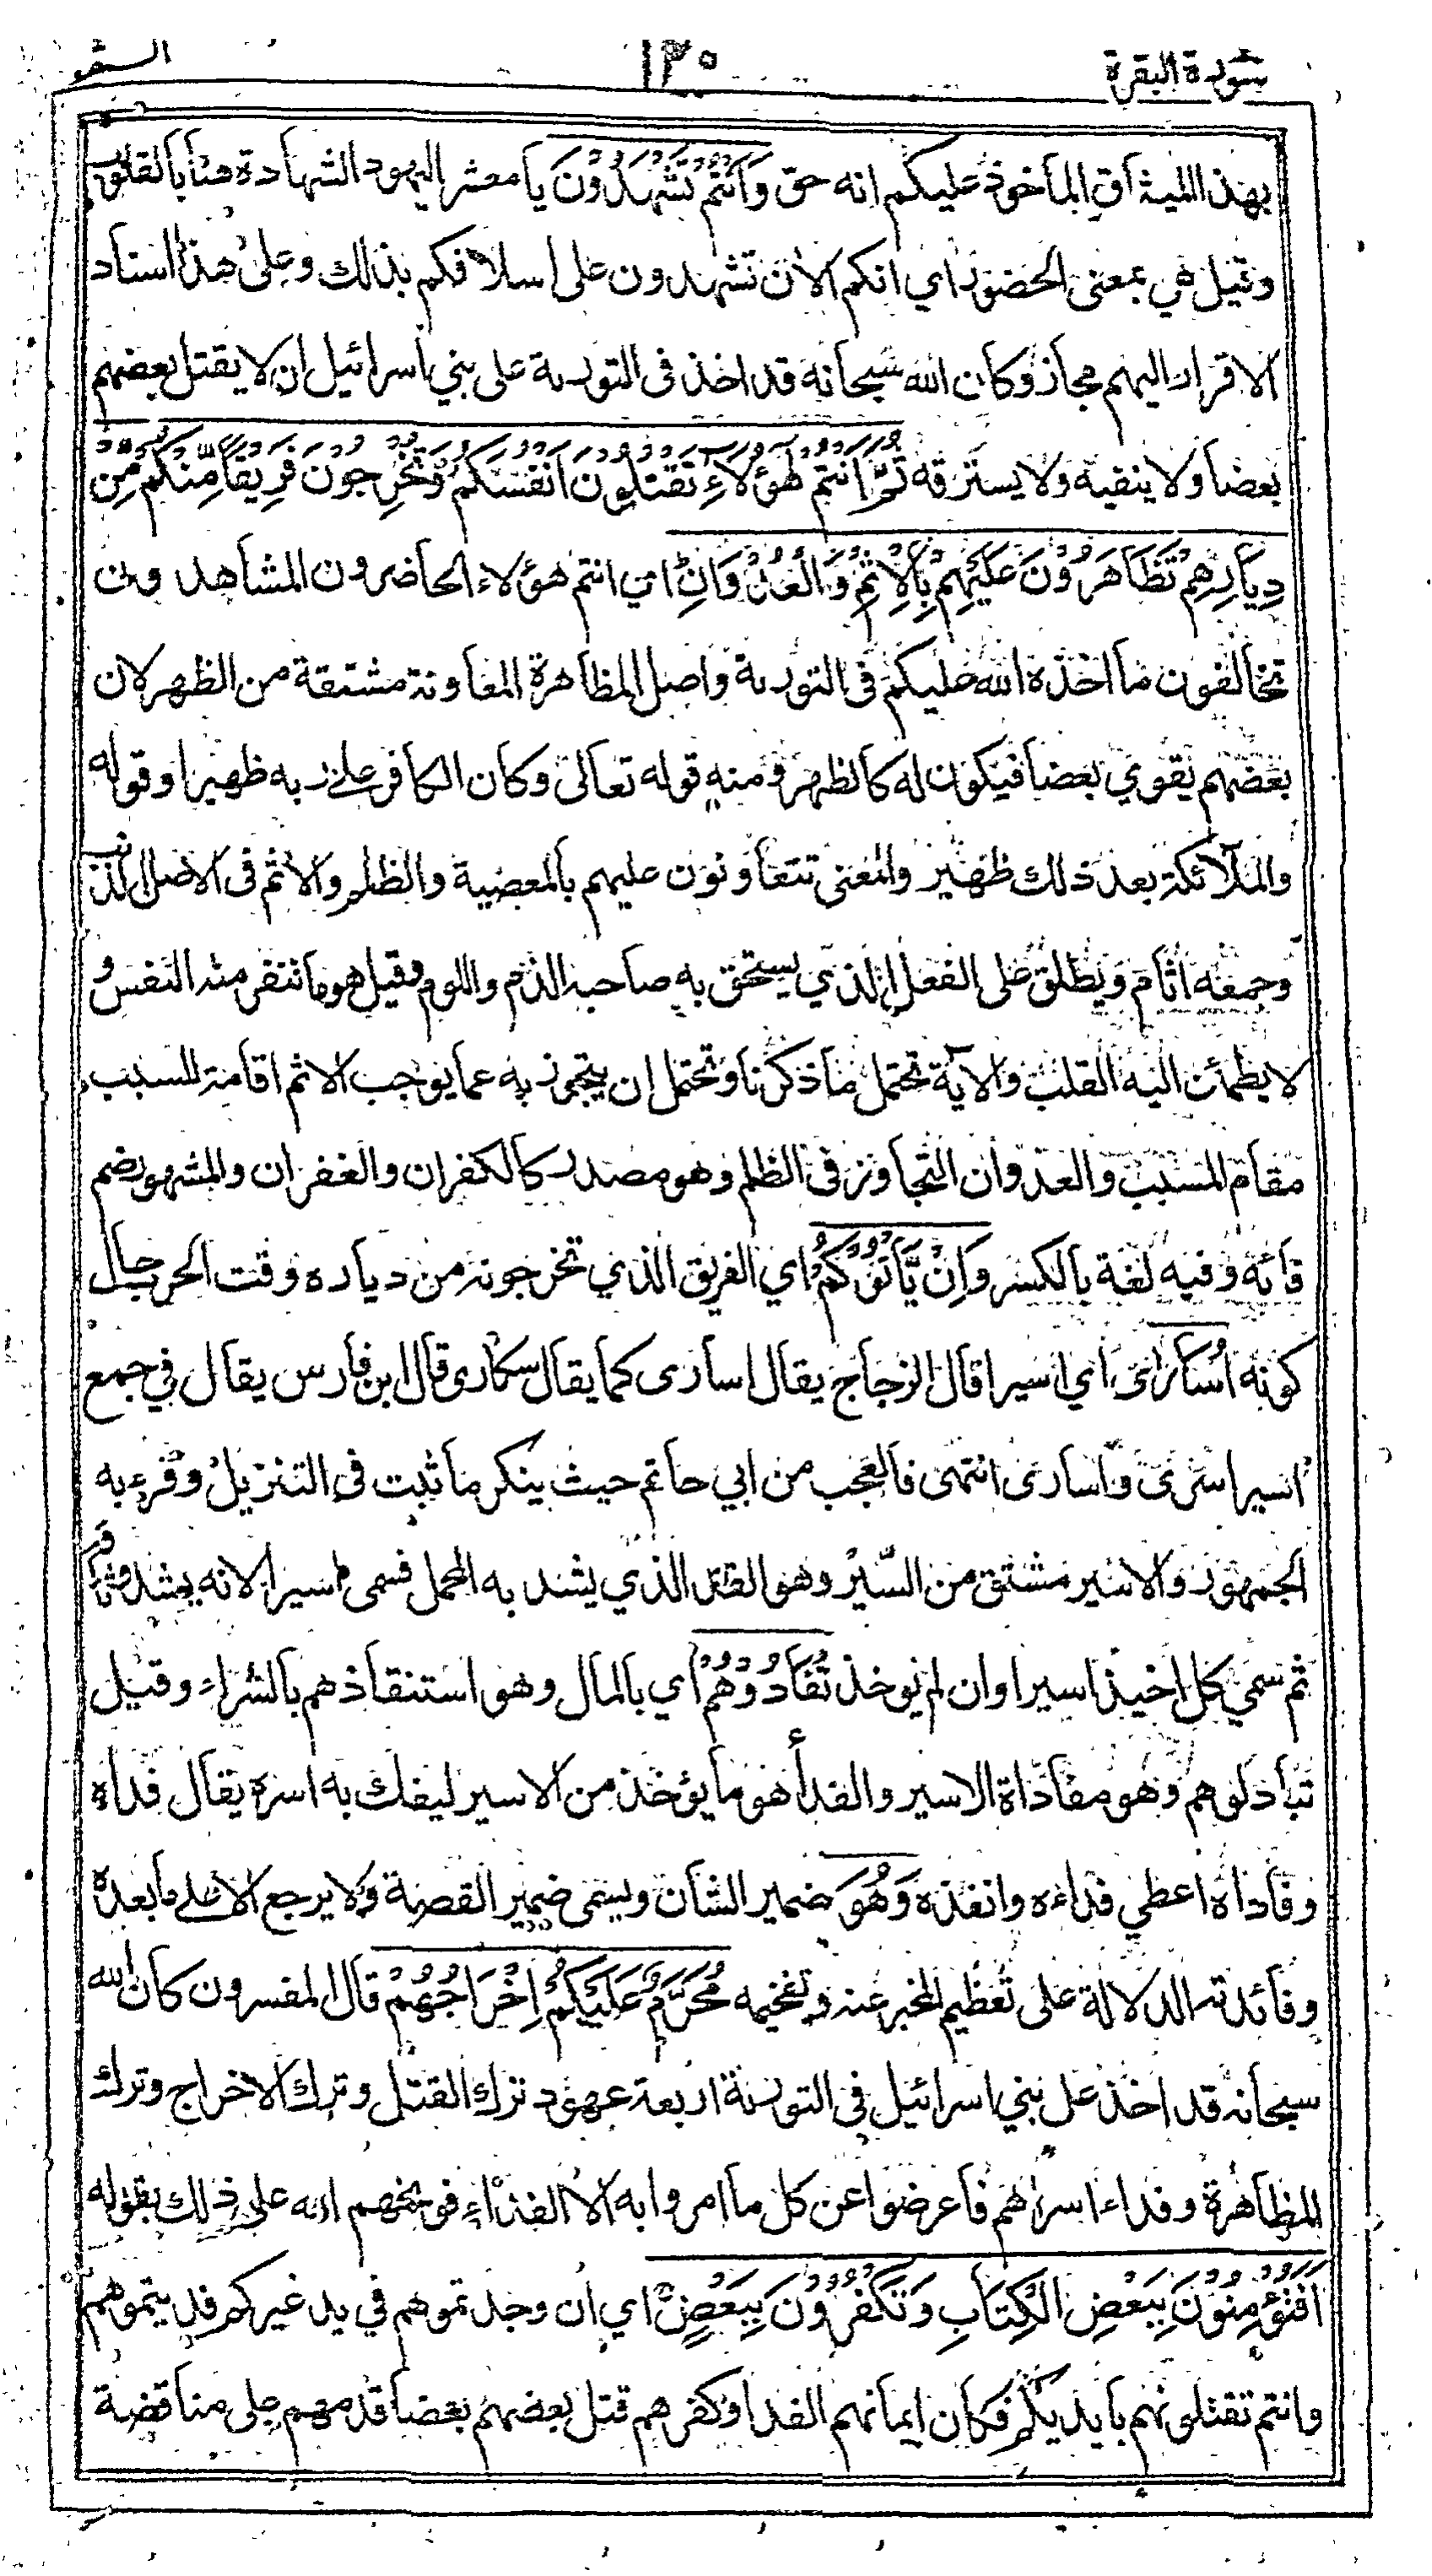 سورة البقرة
١٢٠
بهذا الميثاق المأخوذ عليكم انه حق وَأَنتُمْ تَشْهَدُونَ يا معشر اليهود الشهادة هنا بالقلوب
وقيل هي بمعنى الحضور اي انكم الآن تشهدون على اسلافكم بذلك وعلى هذا اسناد
الاقرار اليهم مجاز وكان الله سبحانه قد اخذ فى التورية على بني اسرائيل ان لا يقتل بعضهم
بعضا ولا ينفيه ولا يسترقه ثُمَّ أَنتُمْ هَؤُلَاءِ تَقْتُلُونَ أَنفُسَكُمْ وَتُخْرِجُونَ فَرِيقًا مِّنكُم مِّن
دِيَارِهِمْ تَظَاهَرُونَ عَلَيْهِم بِالْإِثْمِ وَالْعُدْوَانِ اي انتم هؤلاء الحاضرون المشاهدون
تخالفون ما اخذه الله عليكم فى التورية واصل المظاهرة المعاونة مشتقة من الظهر لان
بعضهم يقوي بعضا فيكون له كالظهر ومنه قوله تعالى وكان الكافر على ربه ظهيرا وقوله
والملآئكة بعد ذلك ظهير والمعنى تتعاونون عليهم بالمعصية والظلم والاثم فى الاصل الذنب
وجمعه اثام ويطلق على الفعل الذي يستحق به صاحبه الذم واللوم وقيل هو ما تنفر منه النفس و
لا يطمئن اليه القلب والآية تحتمل ما ذكرنا وتحتمل ان يتجوز به عما يوجب الاثم اقامة للسبب
مقام المسبب والعدوان التجاوز فى الظلم وهو مصدر كالكفران والغفران والمشهور ضم
فائه وفيه لغة بالكسر وَإِن يَأْتُوكُمْ اي الفريق الذي تخرجونه من دياره وقت الحرب حال
كونه أُسَارَى اي اسيرا قال الزجاج يقال اسارى كما يقال سكارى قال ابن فارس يقال في جمع
اسير اسرى واسارى انتهى فالعجب من ابي حاتم حيث ينكر ما ثبت في التنزيل وقرء به
الجمهور والاسير مشتق من السَّيْر وهو القد الذي يشد به المحمل فسمي اسيرا لانه يشد وثاقه
ثم سمي كل اخيذ اسيرا وان لم يوخذ تُفَادُوهُمْ اي بالمال وهو استنقاذهم بالشراء وقيل
تبادلوهم وهو مفاداة الاسير والفدأ هو ما يؤخذ من الاسير ليفك به اسره يقال فداه
وفاداه اعطي فداءه وانقذه وَهُوَ ضمير الشأن ويسمى ضمير القصة ولا يرجع الا على ما بعده
وفائدته الدلالة على تعظيم المخبر عنه وتفخيمه مُحَرَّمٌ عَلَيْكُمْ إِخْرَاجُهُمْ قال المفسرون كان الله
سبحانه قد اخذ على بني اسرائيل في التورية اربعة عهود ترك القتل وترك الاخراج وترك
المظاهرة وفداء اسراهم فاعرضوا عن كل ما امروا به الا الفداء فوبخهم الله على ذلك بقوله
أَفَتُؤْمِنُونَ بِبَعْضِ الْكِتَابِ وَتَكْفُرُونَ بِبَعْضٍ اي ان وجدتموهم في يد غيركم فديتموهم
وانتم تقتلونهم بايديكم فكان ايمانهم الفدا وكفرهم قتل بعضهم بعضا فذمهم على مناقضة